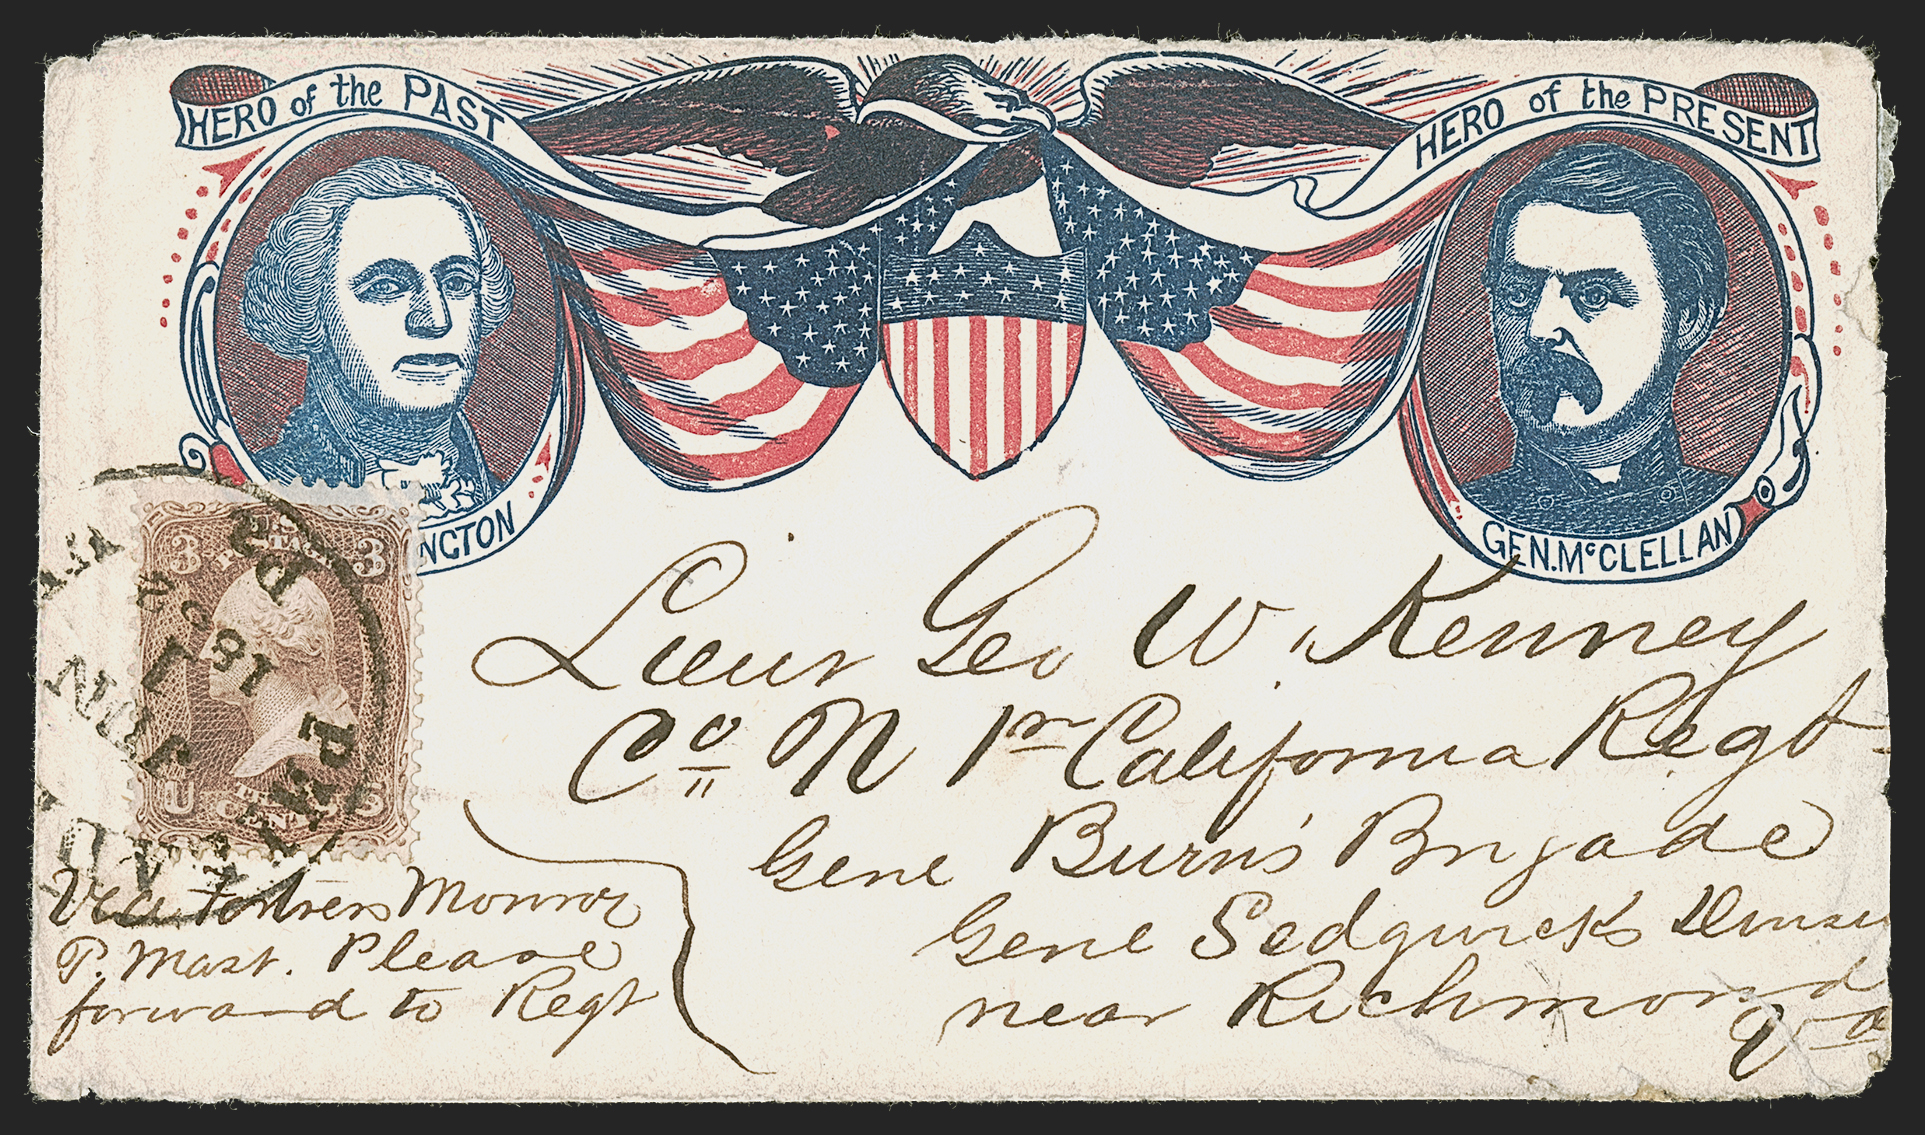 HERO of the PAST
HERO of the PRESENT
NGTON
GEN. McCLELLAN
3 3
U S
CENTS
PHILADA
PA
JUN
1
1862
Lieut Geo W. Kenney
Co N 1st California Regt
Genl Burns' Brigade
Genl Sedgwick's
near Richmond
Va
Via Fortress Monroe
P. Mast. Please
forward to Regt